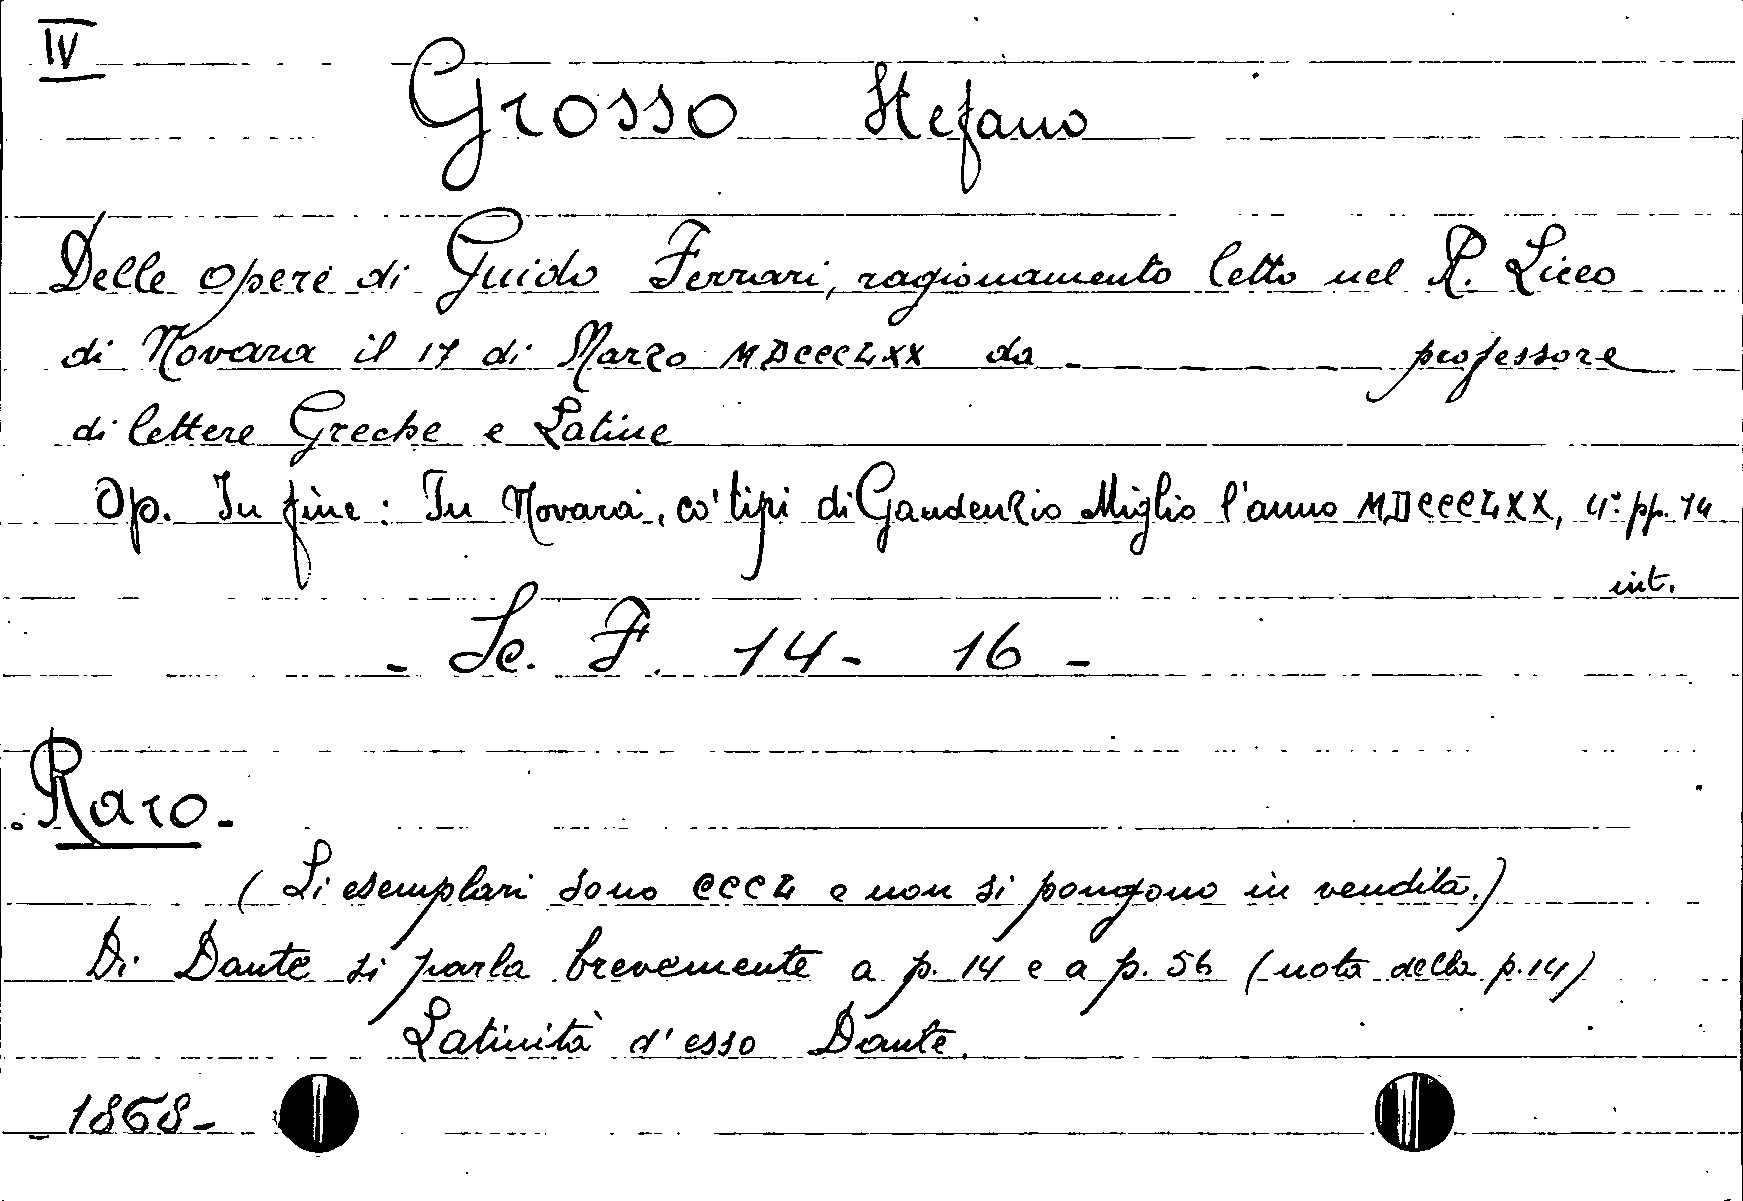 IV
Grosso Stefano
Delle opere di Guido Ferrari, ragionamento letto nel R. Liceo
di Novara il 17 di Marzo MDCCCLXX da - professore
di lettere Greche e Latine
Op. In fine: In Novara, co' tipi di Gaudenzio Miglio l'anno MDCCCLXX, 4° pp. 74
int.
- Sc. F. 14 - 16 -
Raro -
(Li esemplari sono CCCL e non si pongono in vendita.)
Di Dante si parla brevemente a p. 14 e a p. 56 (nota della p. 14)
Latinità d'esso Dante.
- 1868 -